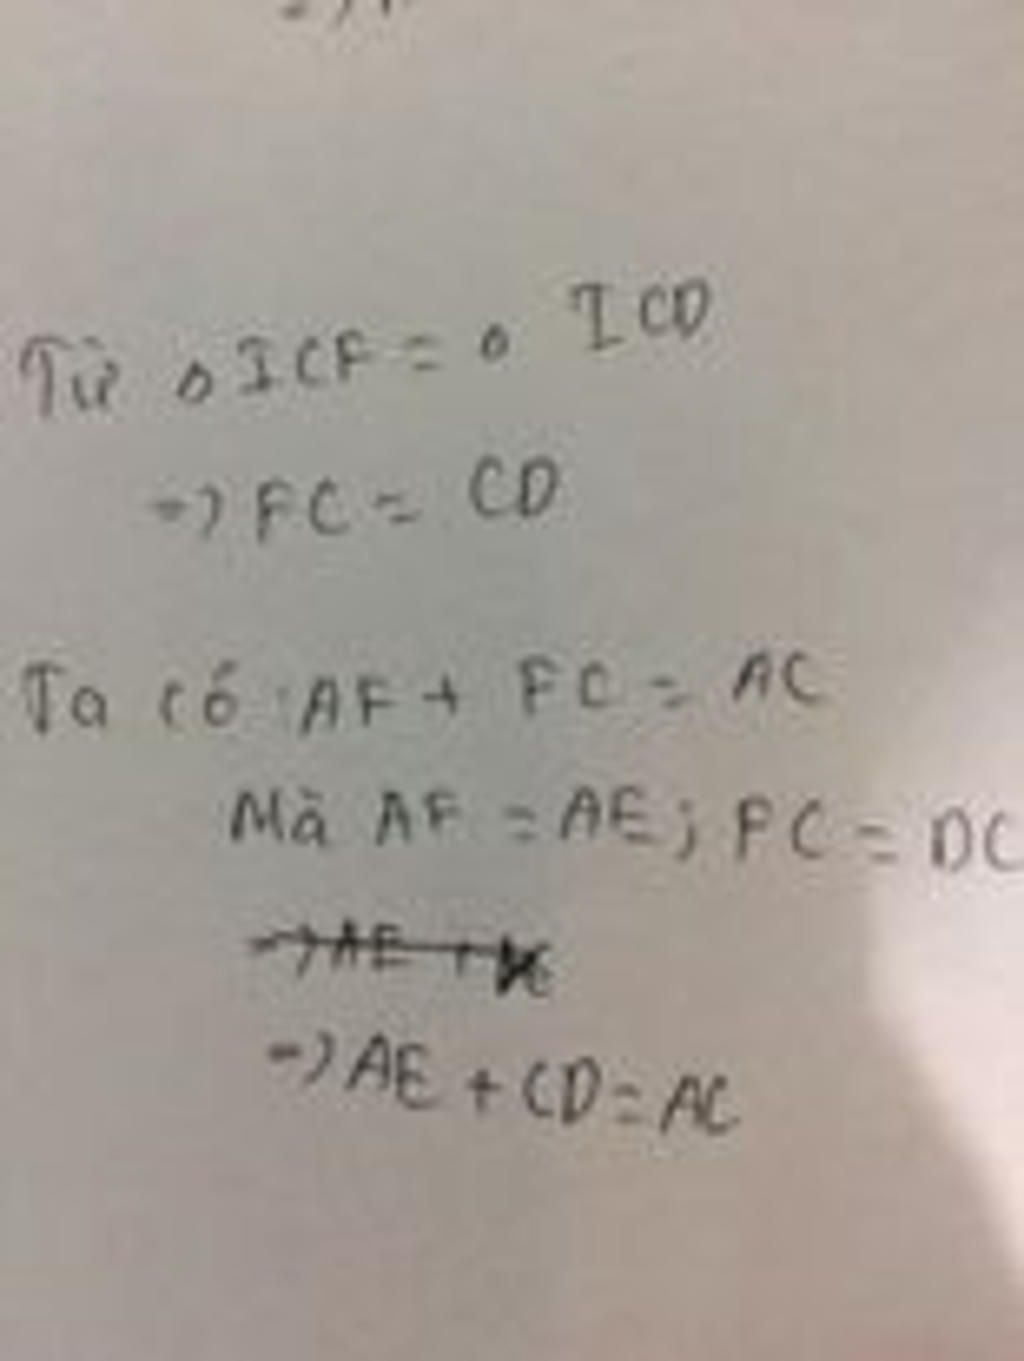 Từ Δ ICF = Δ ICD
=> FC = CD
Ta có : AF + FC = AC
Mà AF = AE ; FC = DC
=> AE +
=> AE + CD = AC